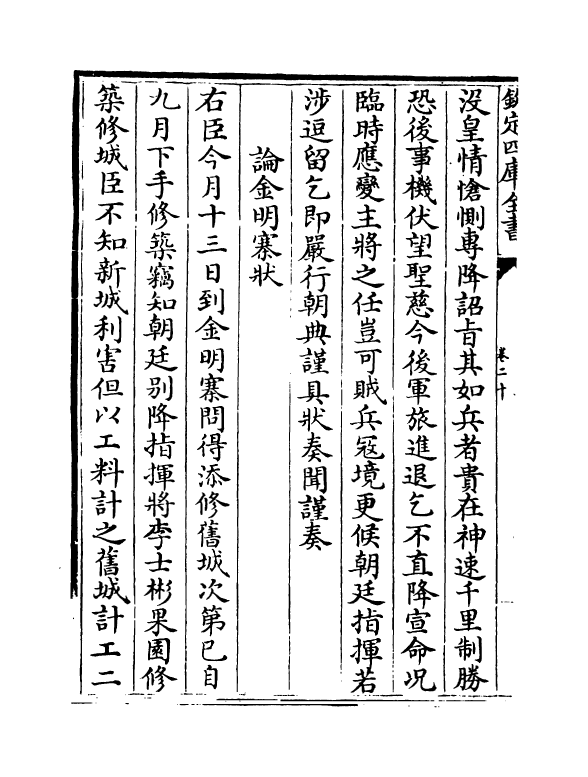 欽定四庫全書
卷二十
没皇情愴惻專降詔旨其如兵者貴在神速千里制勝
恐後事機伏望聖慈今後軍旅進退乞不直降宣命况
臨時應變主將之任豈可賊兵冦境更候朝廷指揮若
涉逗留乞即嚴行朝典謹具狀奏聞謹奏
論金明寨狀
右臣今月十三日到金明寨問得添修舊城次第已自
九月下手修築竊知朝廷别降指揮將李士彬果園修
築修城臣不知新城利害但以工料計之舊城計工二